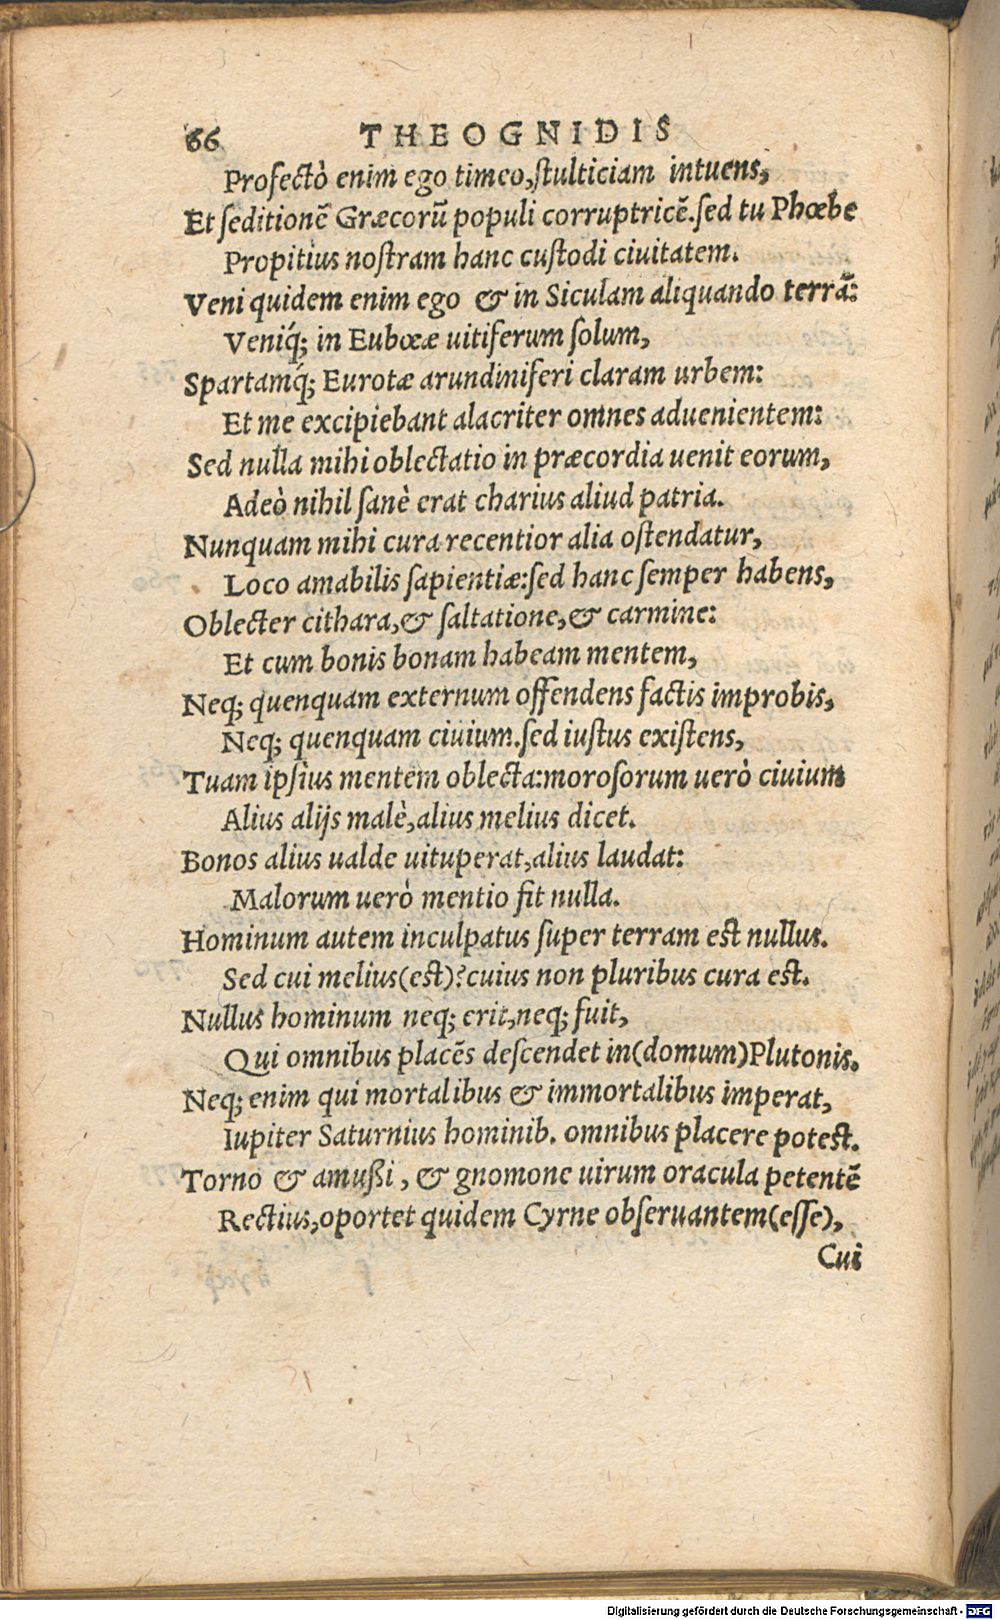 66 THEOGNIDIS
Profectò enim ego timeo,ſtulticiam intuens,
Et ſeditionē Græcorū populi corruptricē.ſed tu Phœbe
Propitius noſtram hanc cuſtodi ciuitatem.
Veni quidem enim ego & in Siculam aliquando terrā:
Veniq́; in Eubœæ uitiferum ſolum,
Spartamq́; Eurotæ arundiniferi claram urbem:
Et me excipiebant alacriter omnes aduenientem:
Sed nulla mihi oblectatio in præcordia uenit eorum,
Adeò nihil ſanè erat charius aliud patria.
Nunquam mihi cura recentior alia oſtendatur,
Loco amabilis ſapientiæ:ſed hanc ſemper habens,
Oblecter cithara,& ſaltatione,& carmine:
Et cum bonis bonam habeam mentem,
Neq; quenquam externum offendens factis improbis,
Neq; quenquam ciuium.ſed iuſtus exiſtens,
Tuam ipſius mentem oblecta:moroſorum uerò ciuium
Alius alijs malè,alius melius dicet.
Bonos alius ualde uituperat,alius laudat:
Malorum uerò mentio fit nulla.
Hominum autem inculpatus ſuper terram eſt nullus.
Sed cui melius(eſt)?cuius non pluribus cura eſt.
Nullus hominum neq; erit,neq; fuit,
Qui omnibus placēs deſcendet in(domum)Plutonis.
Neq; enim qui mortalibus & immortalibus imperat,
Iupiter Saturnius hominib. omnibus placere poteſt.
Torno & amußi, & gnomone uirum oracula petentē
Rectius,oportet quidem Cyrne obſeruantem(eſſe),
Cui
Digitalisierung gefördert durch die Deutsche Forschungsgemeinschaft - DFG